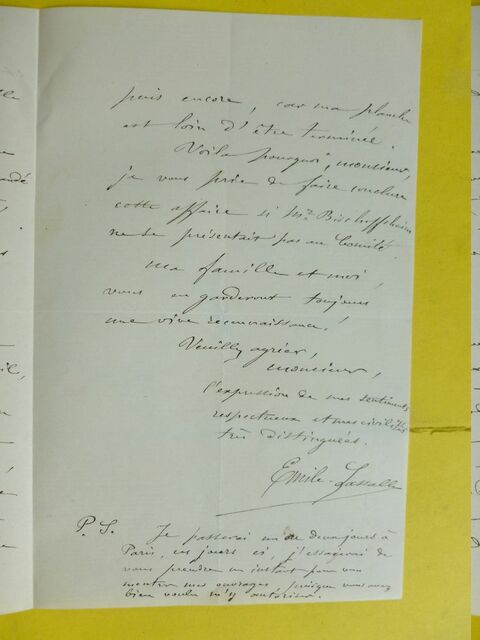 puis encore, car ma planche
est loin d'être terminée.
Voilà pourquoi, monsieur,
je vous prie de faire conclure
cette affaire si Mr. Bischoffsheim
ne se présentait pas au Comité.
Ma famille et moi,
vous en garderont toujours
une vive reconnaissance!
Veuillez agréer,
monsieur,
l'expression de mes sentiments
respectueux et mes civilités
très distinguées.
Emile Lassalle
P. S. Je passerai un ou deux jours à
Paris, ces jours ci, j'essayerai de
vous prendre un instant pour vous
montrer mes ouvrages, puisque vous avez
bien voulu m'y autoriser.